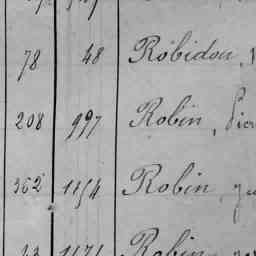 78 48 Robidou,
208 997 Robin, Pier
362 1154 Robin
1171 Robin